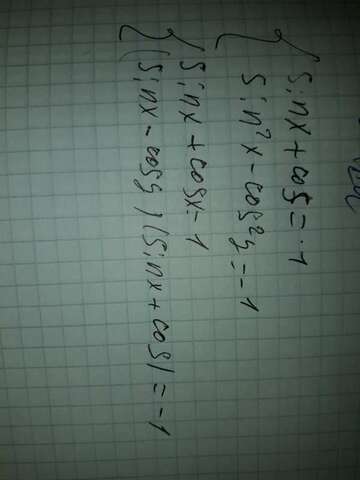 { sinx + cosy = -1
sin²x - cos²y = -1
{ sinx + cosx = -1
(sinx - cosy)(sinx + cosy) = -1